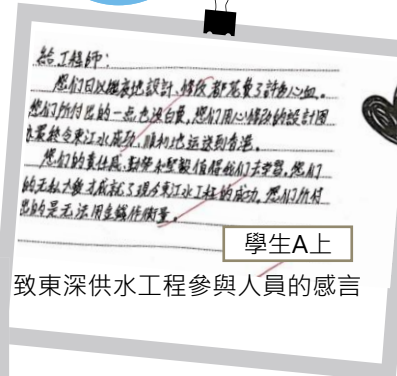 給工程師：
您们日以繼夜地設計、修改都花費了許多心血。
您们所付出的一点也沒白費，您们用心修改的設計圖
最終令東江水成功、順利地运送到香港。
您们的責任感、勤勞和堅毅值得我们去学習，您们
的无私大爱才成就了現今東江水工程的成功，您们所付
出的是无法用金錢作衡量。
學生A上
致東深供水工程參與人員的感言